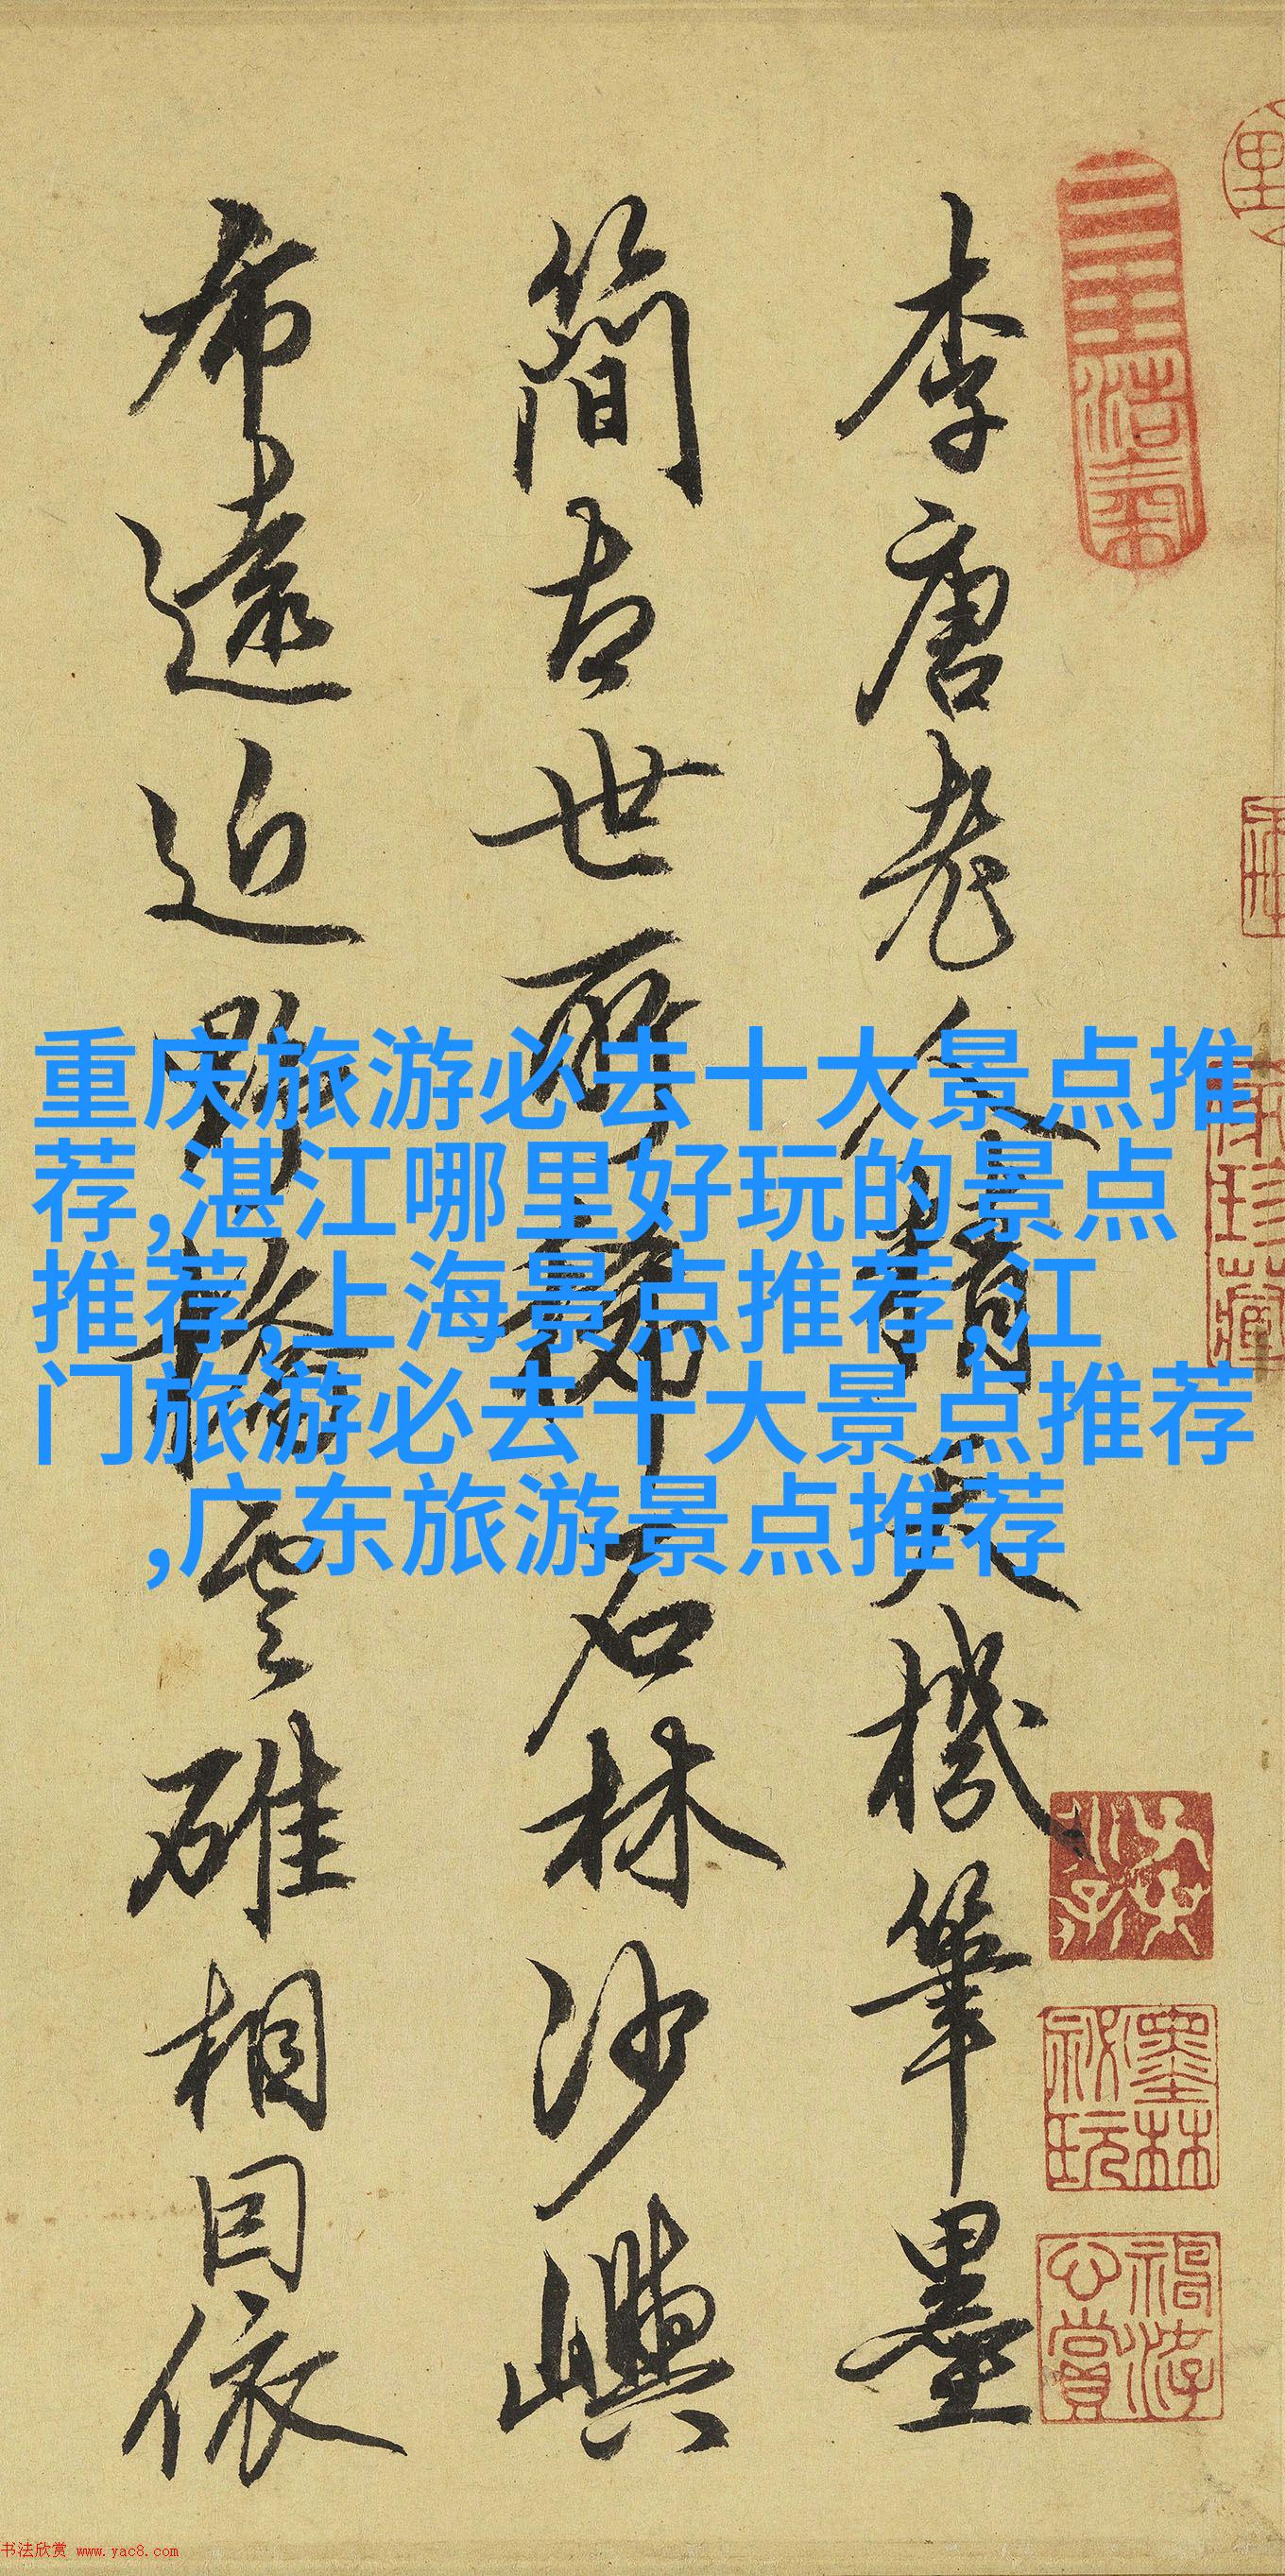 李唐老人精天機筆墨
簡古世所稀石林沙嶼
布遠近野橋雲碓相因依
重庆旅游必去十大景点推
荐,湛江哪里好玩的景点
推荐,上海景点推荐,江
门旅游必去十大景点推荐
,广东旅游景点推荐
墨林秘玩
书法欣赏 www.yac8.com